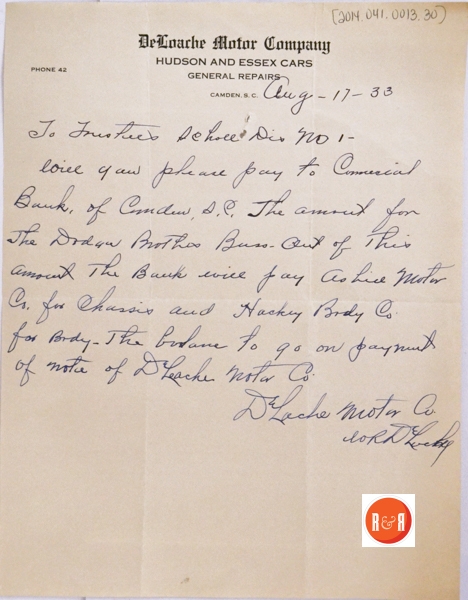 [2014.041.0013.30]
DeLoache Motor Company
HUDSON AND ESSEX CARS
PHONE 42
GENERAL REPAIRS
CAMDEN, S.C. Aug-17-33
To Trustees School Dis NO 1-
Will you please pay to Comercial
Bank, of Camden, S.C. The amount for
The Brothes Buss-Out of This
amount The Bank will pay Motor
Co. for Chassis and Hackey Body Co.
for Body-The balane to go on payment
of note of DeLoache Motor Co.
DeLoache Motor Co
DeLoache
R&R